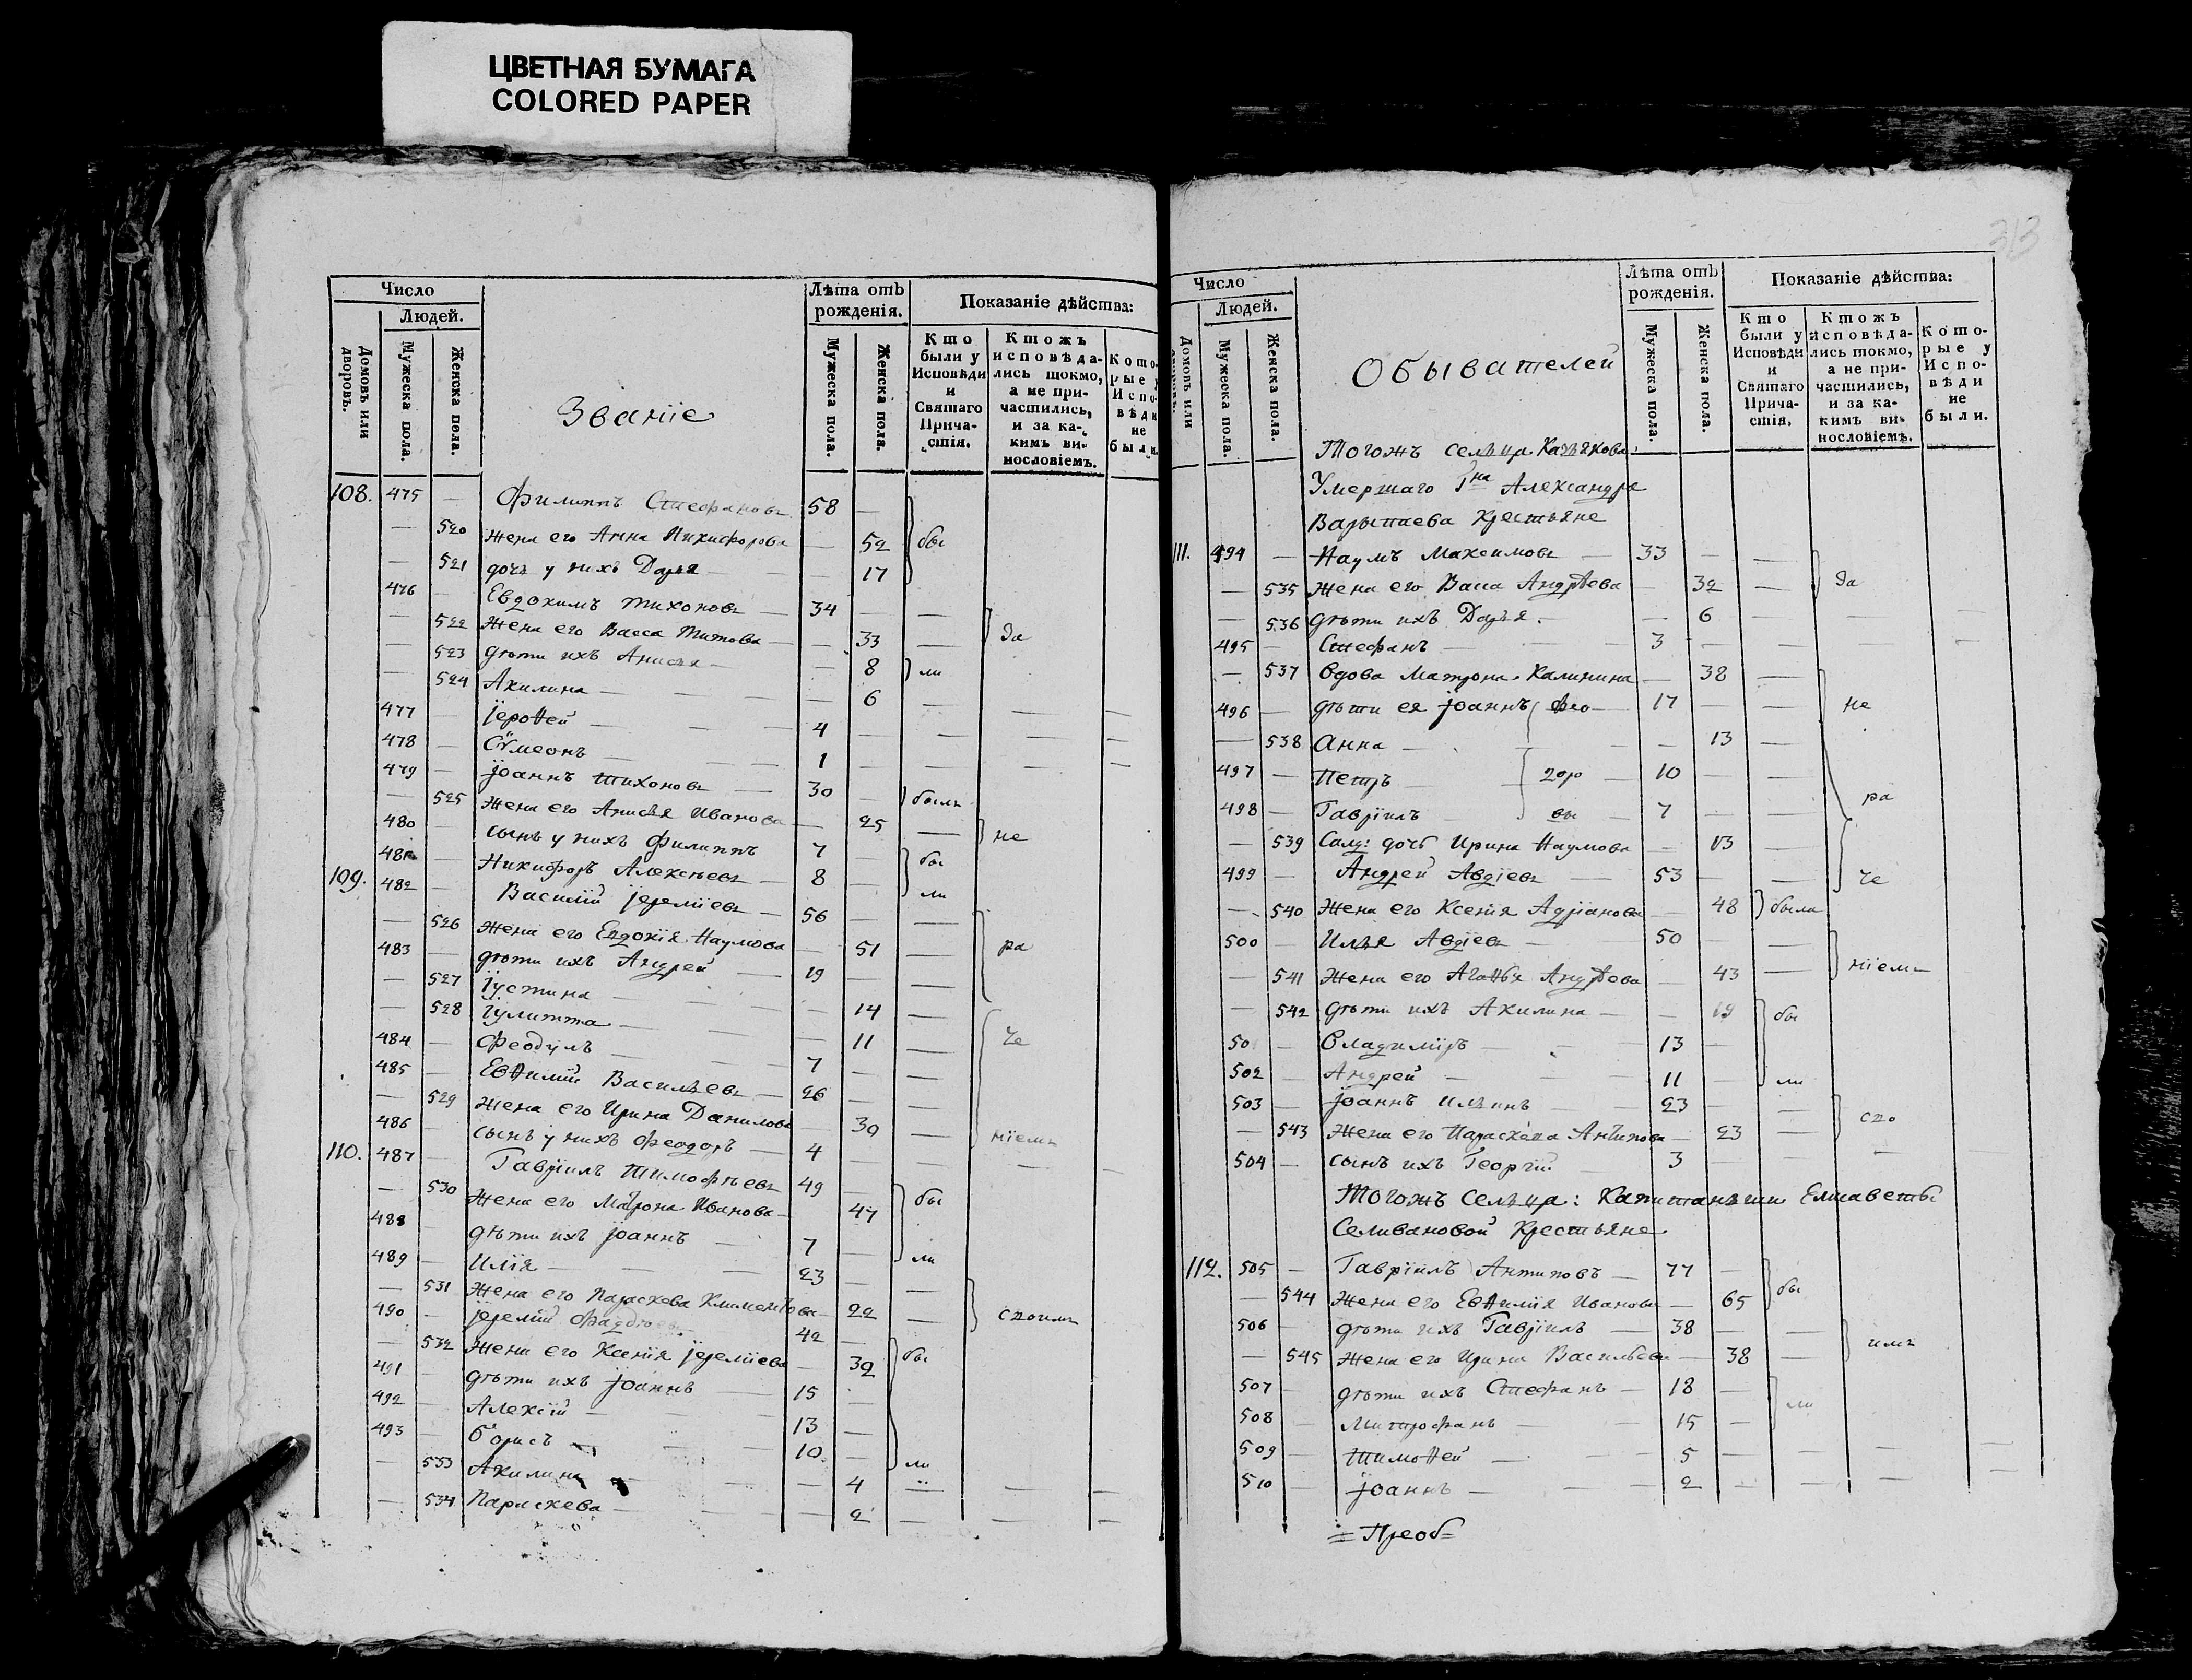 ЦВЕТНАЯ БУМАГА
COLORED PAPER
Число
Людей.
Домовъ или дворовъ.
Мужеска пола.
Женска пола.
Званіе
Лѣта отъ рожденія.
Мужеска пола.
Женска пола.
Показаніе дѣйства:
Кто были у Исповѣди и Святаго Причастія.
Ктожъ исповѣдались токмо, а не причастились, и за какимъ винословіемъ.
Кото-
рые у
Испо-
вѣди
не
были.
108. 475 — Филиппъ Стефановъ 58 —
— 520 Жена его Анна Никифорова — 52 бы
— 521 дочь у нихъ Дарья — 17
476 — Евдокимъ Тихоновъ — 34 — —
— 522 Жена его Васса Титова — 33 — За
— 523 дѣти ихъ Анисья — — 8 ли
— 524 Акилина — — 6 — — —
477 — Іероѳей — — 4 — — — —
478 — Сѷмеонъ — — 1 — — — —
479 — Іоаннъ Тихоновъ — 30 — былъ
— 525 Жена его Анисья Иванова — 25 — не
480 — сынъ у нихъ Филиппъ 7 — бы
481 — Никифоръ Алексѣевъ — 8 — ли
109. 482 — Василій Іереміевъ — 56 — —
— 526 Жена его Евдокія Наумова — 51 — ра
483 — дѣти ихъ Андрей — 19 — —
— 527 Іустина — — 14 —
— 528 Іулитта — — 11 — че
484 — Феодулъ — 7 — —
485 — Евѳимій Васильевъ — 26 — —
— 529 Жена его Ирина Данилова — 30 — ніемъ
486 — сынъ у нихъ Феодоръ — 4 — — — —
110. 487 — Гавріилъ Тимофѣевъ 49 — бы
— 530 Жена его Матрона Иванова — 47
488 — дѣти ихъ Іоаннъ — 7 — ли
489 — Илія — — 23 — —
— 531 Жена его Параскева Климентова — 22 — споимъ
490 — Іеремій 42 —
— 532 Жена его Ксенія Іереміева — 32 бы
491 — дѣти ихъ Іоаннъ — 15 —
492 — Алексій — 13 —
493 — Борисъ — 10 — ли
— 533 Акилина — — 4 — — —
— 534 Параскева — — 2 — — —
313
Число
Людей.
Домовъ или дворовъ.
Мужеска пола.
Женска пола.
Обывателей
Лѣта отъ рожденія.
Мужеска пола.
Женска пола.
Показаніе дѣйства:
Кто были у Исповѣди и Святаго Причастія.
Ктожъ исповѣдались токмо, а не причастились, и за какимъ винословіемъ.
Которые у Исповѣди не были.
Тогожъ сельца Казякова:
Умершаго Гна Александра
Варыпаева Крестьяне
111. 494 — Наумъ Максимовъ — 33 — —
— 535 Жена его Васа Андрѣева — 32 — За
— 536 дѣти ихъ Дарья. — 6 — — —
495 — Стефанъ — 3 — — — —
— 537 Вдова Матрона Калинина — 38 —
496 — дѣти ея Іоаннъ Фео— 17 — — не
— 538 Анна — — 13 —
497 — Петръ — доро — 10 — —
498 — Гавріилъ — вы — 7 — — ра
— 539 Салд: дочь Ирина Наумова — 13 —
499 — Андрей Авдіевъ — 53 — — че
— 540 Жена его Ксенія Адріанова — 48 была
500 — Илья Авдіевъ — 50 —
— 541 Жена его Агаѳья Андрѣева — 43 — ніемъ
— 542 дѣти ихъ Акилина — — 19 бы
501 — Владиміръ — 13 —
502 — Андрей — 11 — ли
503 — Іоаннъ Ильинъ — 23 — —
— 543 Жена его Параскева Антипова — 23 — спо
504 — сынъ ихъ Георгій — 3 — — — —
Тогожъ Сельца: Капитанъши Елисаветы
Селивановой Крестьяне
112. 505 — Гавріилъ Антиповъ — 77 — бы
— 544 Жена его Евѳимія Иванова — 65
506 — дѣти ихъ Гавріилъ — 38 — —
— 545 Жена его Ирина Васильева — 38 — имъ
507 — дѣти ихъ Стефанъ — 18 — ли
508 — Митрофанъ — 15 —
509 — Тимоѳей — 5 — — — —
510 — Іоаннъ — 2 — — — —
=Преоб=